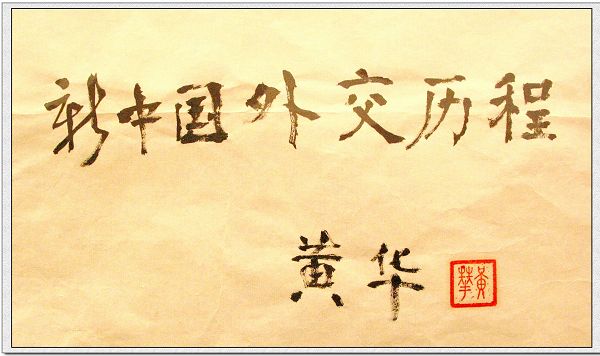 新中国外交历程
黄华
黃華